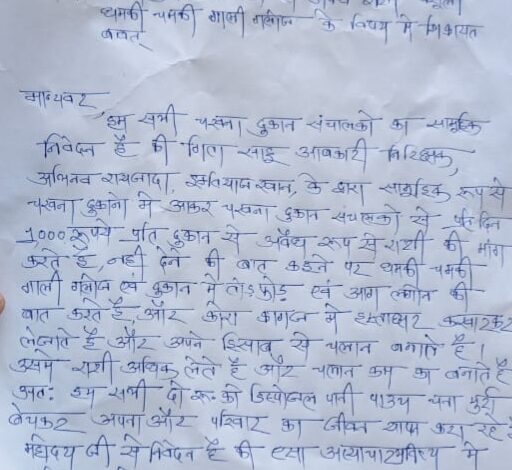 धमकी चमकी गाली गलौज के विषय में शिकायत
बाबत्
मान्यवर
हम सभी चखना दुकान संचालको का सामुहिक
निवेदन है की गिता साहू आबकारी निरिक्षक,
अभिनव रायजादा, इम्तियाज खान, के द्वारा सामुहिक रूप से
चखना दुकानो में आकर चखना दुकान संचालको से प्रति दिन
1,000 रूपये प्रति दुकान से अवैध रूप से राशी की मांग
करते है, नही देने की बात कहने पर धमकी चमकी
गाली गलौज एवं दुकान में तोड़फोड़ एवं आग लगाने की
बात करते है, और कोरा कागज में हस्ताक्षर करवाकर
लेजाते है और अपने हिसाब से चलान बनाते है।
उसमे राशी अधिक लेते है और चलान कम का बनाते है
अतः हम सभी दो रू. की डिस्पोजल पानी पाउच चना मुर्रा
बेचकर अपना और परिवार का जीवन यापन कर रहे है
महोदय जी से निवेदन है की एसा अत्याचार में